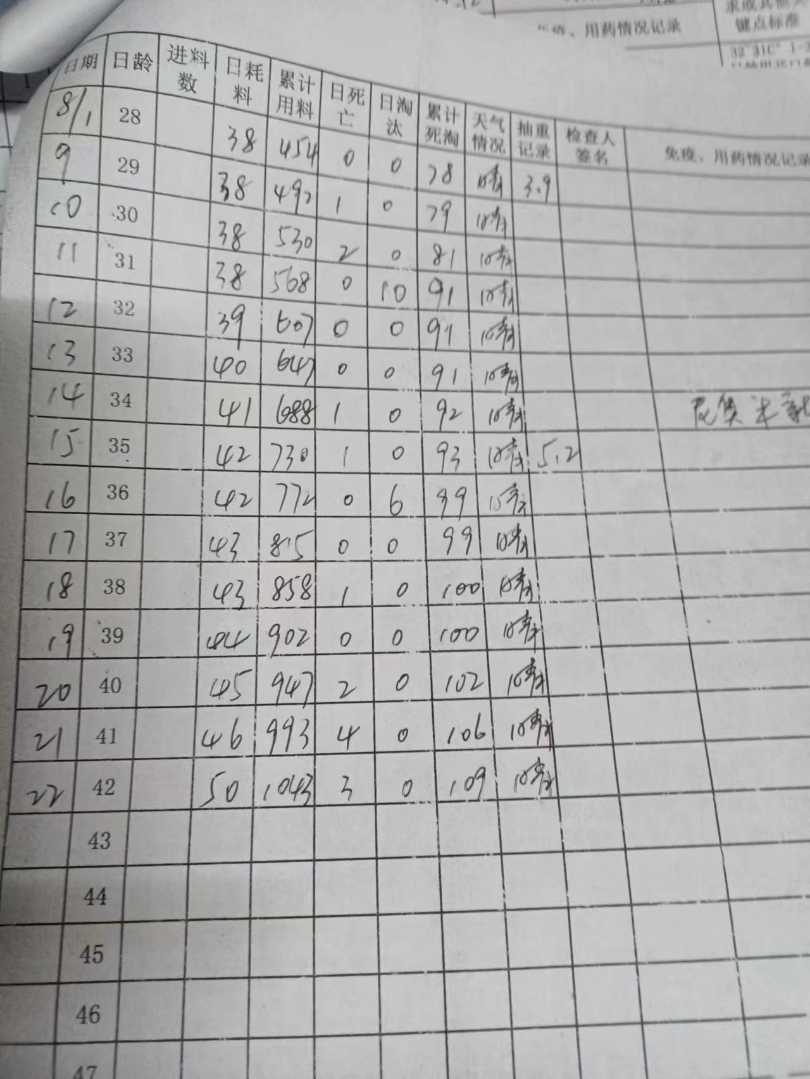 用药情况记录
键点标准
日期 日龄 进料数 日耗料 累计用料 日死亡 日淘汰 累计死淘 天气情况 抽重记录 检查人签名 免疫、用药情况记录
8/1 28 38 454 0 0 78 3.9
9 29 38 492 1 0 79
10 30 38 530 2 0 81
11 31 38 568 0 10 91
12 32 39 607 0 0 91
13 33 40 647 0 0 91
14 34 41 688 1 0 92
15 35 42 730 1 0 93 5.2
16 36 42 772 0 6 99
17 37 43 815 0 0 99
18 38 43 858 1 0 100
19 39 44 902 0 0 100
20 40 45 947 2 0 102
21 41 46 993 4 0 106
22 42 50 1043 3 0 109
43
44
45
46
47